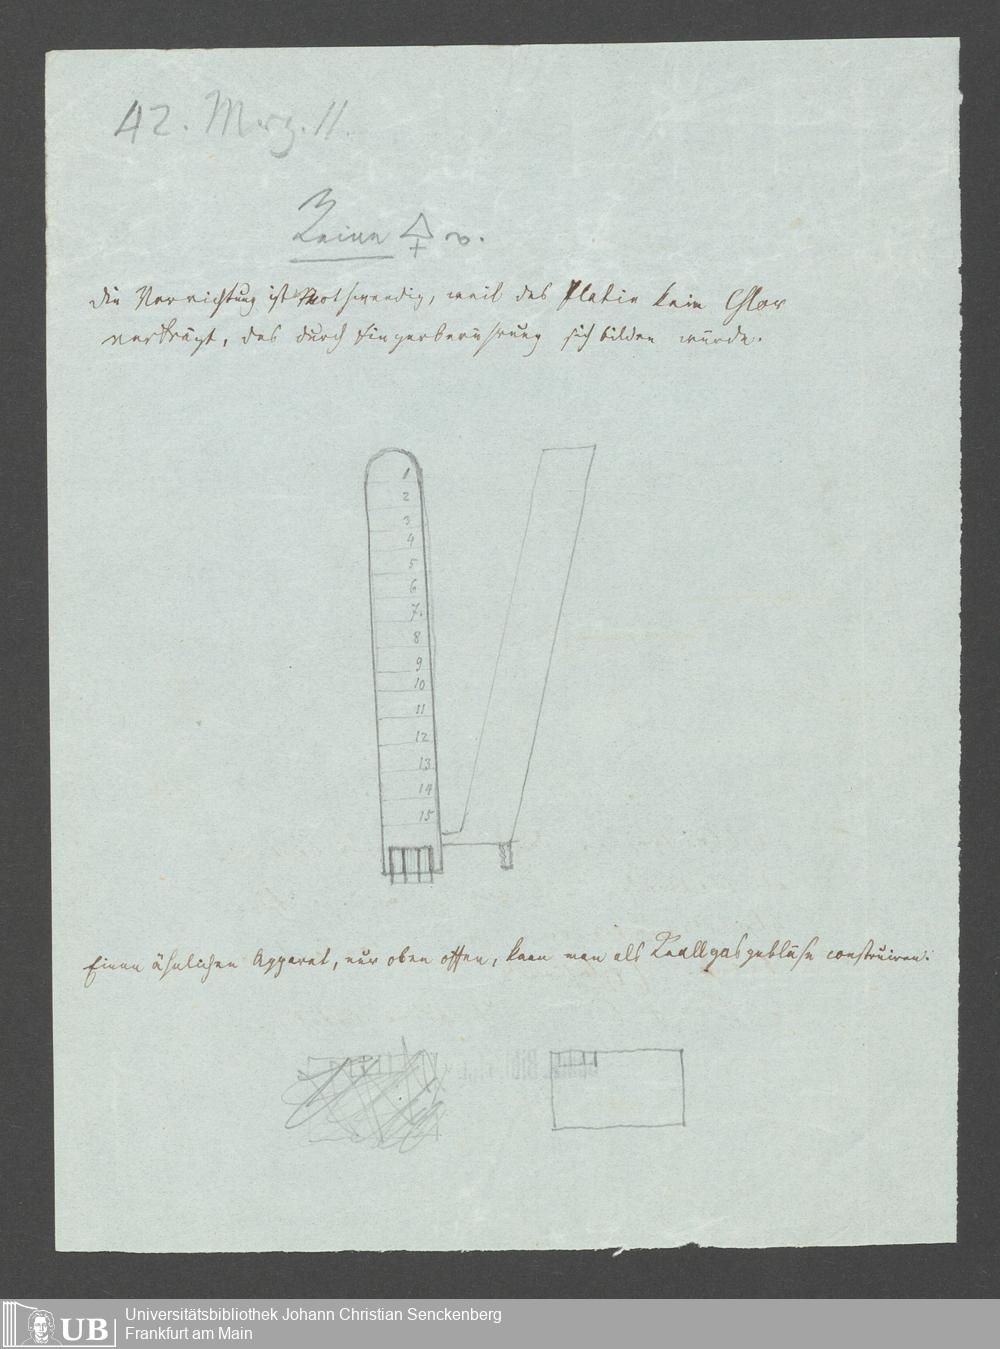 42. Merg. 11.
Keine
die Vorrichtung ist Nothwendig, weil das Platin kein Chlor
verträgt, das durch Fingerberührung sich bilden würde.
1
2
3
4
5
6
7.
8
9
10
11
12
13
14
15
Einen ähnlichen Apparat, nur oben offen, kann man als Knallgasgebläse construiren.
UB
Universitätsbibliothek Johann Christian Senckenberg
Frankfurt am Main